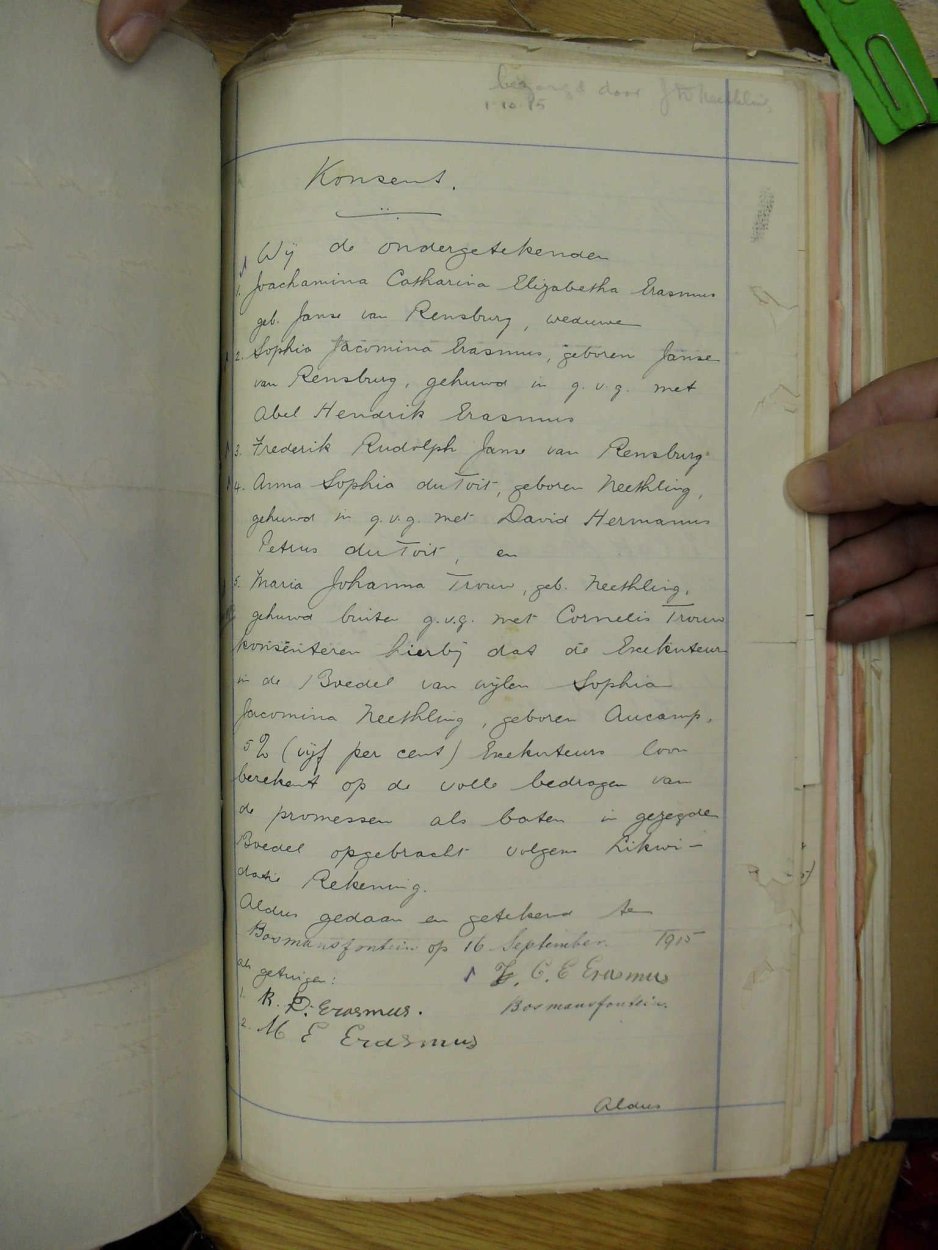 bezorgd door J W Neethling
1-10-15
Konsent.
Wij de ondergetekenden
1. Joachamina Catharina Elizabetha Erasmus
geb. Janse van Rensburg, weduwe
2. Sophia Jacomina Erasmus, geboren Janse
van Rensburg, gehuwd in g.v.g. met
Abel Hendrik Erasmus
3. Frederik Rudolph Janse van Rensburg
4. Anna Sophia du Toit, geboren Neethling,
gehuwd in g.v.g. met David Hermanus
Petrus du Toit, en
5. Maria Johanna Trouw, geb. Neethling,
gehuwd buiten g.v.g. met Cornelis Trouw
konsenteren hierbij dat de Exekuteur
in de Boedel van wijlen Sophia
Jacomina Neethling, geboren Aucamp,
5% (vijf per cent) Exekuteurs loon
berekent op de volle bedragen van
de promessen als baten in gezegde
Boedel opgebracht volgens Likwi-
datie Rekening.
Aldus gedaan en getekend te
Bosmansfontein op 16 September 1915
als getuigen: C. E Erasmus
1. R. D. Erasmus. Bosmansfontein
2. M E Erasmus
Aldus